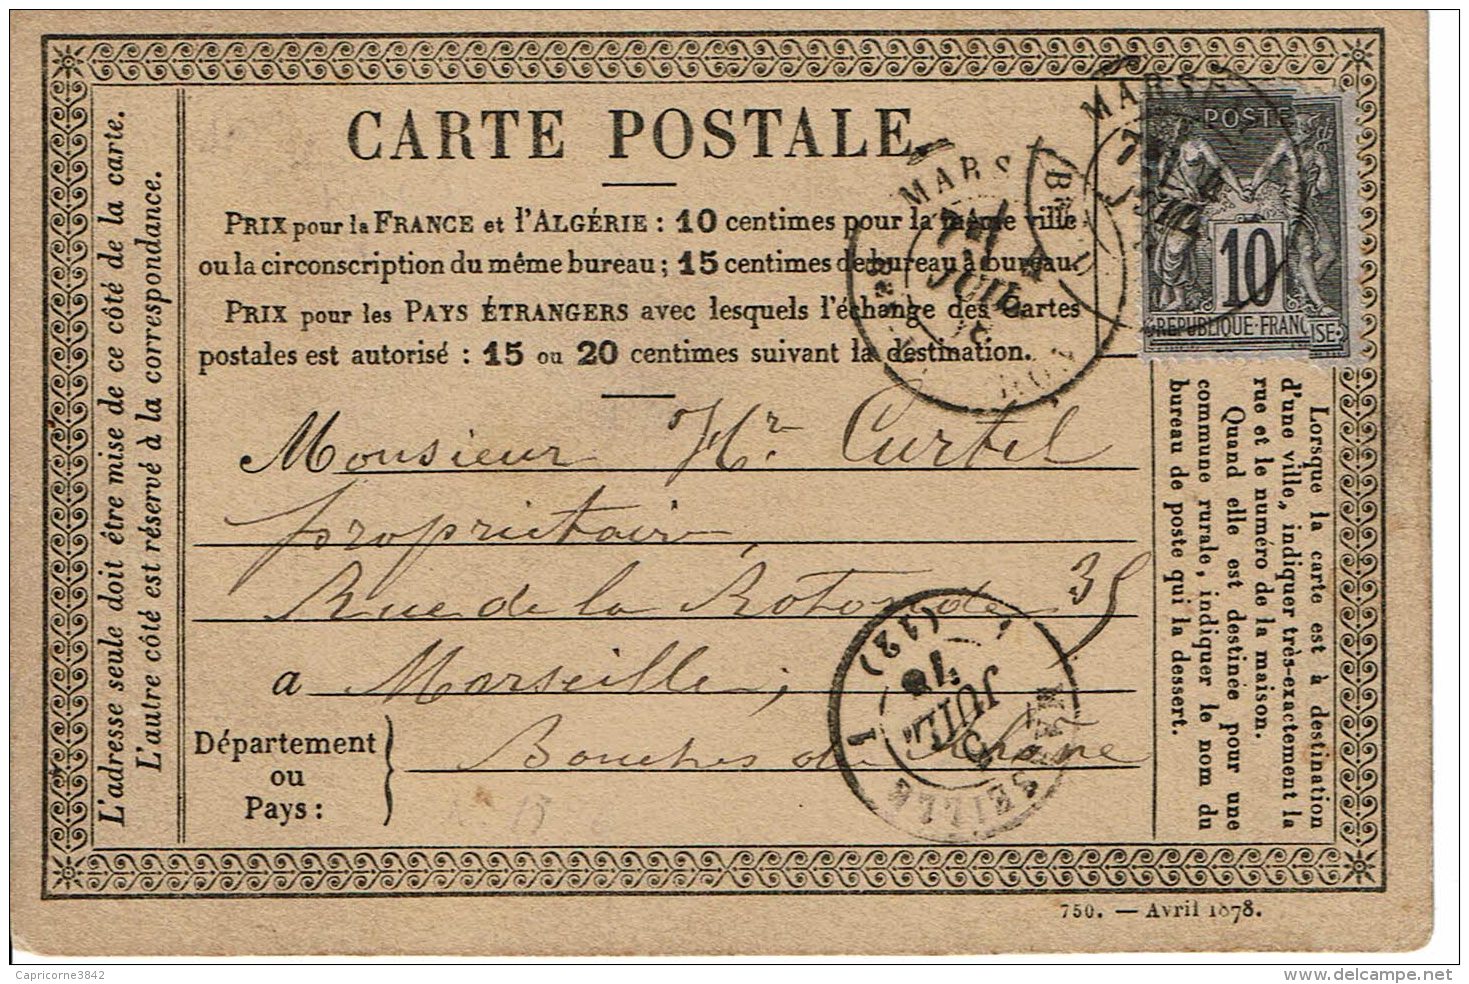 CARTE POSTALE
PRIX pour la FRANCE et l'ALGÉRIE : 10 centimes pour la même ville
ou la circonscription du même bureau ; 15 centimes de bureau à bureau.
PRIX pour les PAYS ÉTRANGERS avec lesquels l'échange des Cartes
postales est autorisé : 15 ou 20 centimes suivant la destination.
Monsieur Hr. Curtel
propriétaire,
Rue de la Rotonde 35
a Marseille,
Département
ou
Pays :
Bouches du Rhône
L'adresse seule doit être mise de ce côté de la carte.
L'autre côté est réservé à la correspondance.
Lorsque la carte est à destination
d'une ville, indiquer très-exactement la
rue et le numéro de la maison.
Quand elle est destinée pour une
commune rurale, indiquer le nom du
bureau de poste qui la dessert.
POSTE
10
REPUBLIQUE FRANC
ISE
MARSE
MARS
JUIL
MARSEILLE
(13)
JUIL
78
750. — Avril 1878.
Capricorne3842
www.delcampe.net